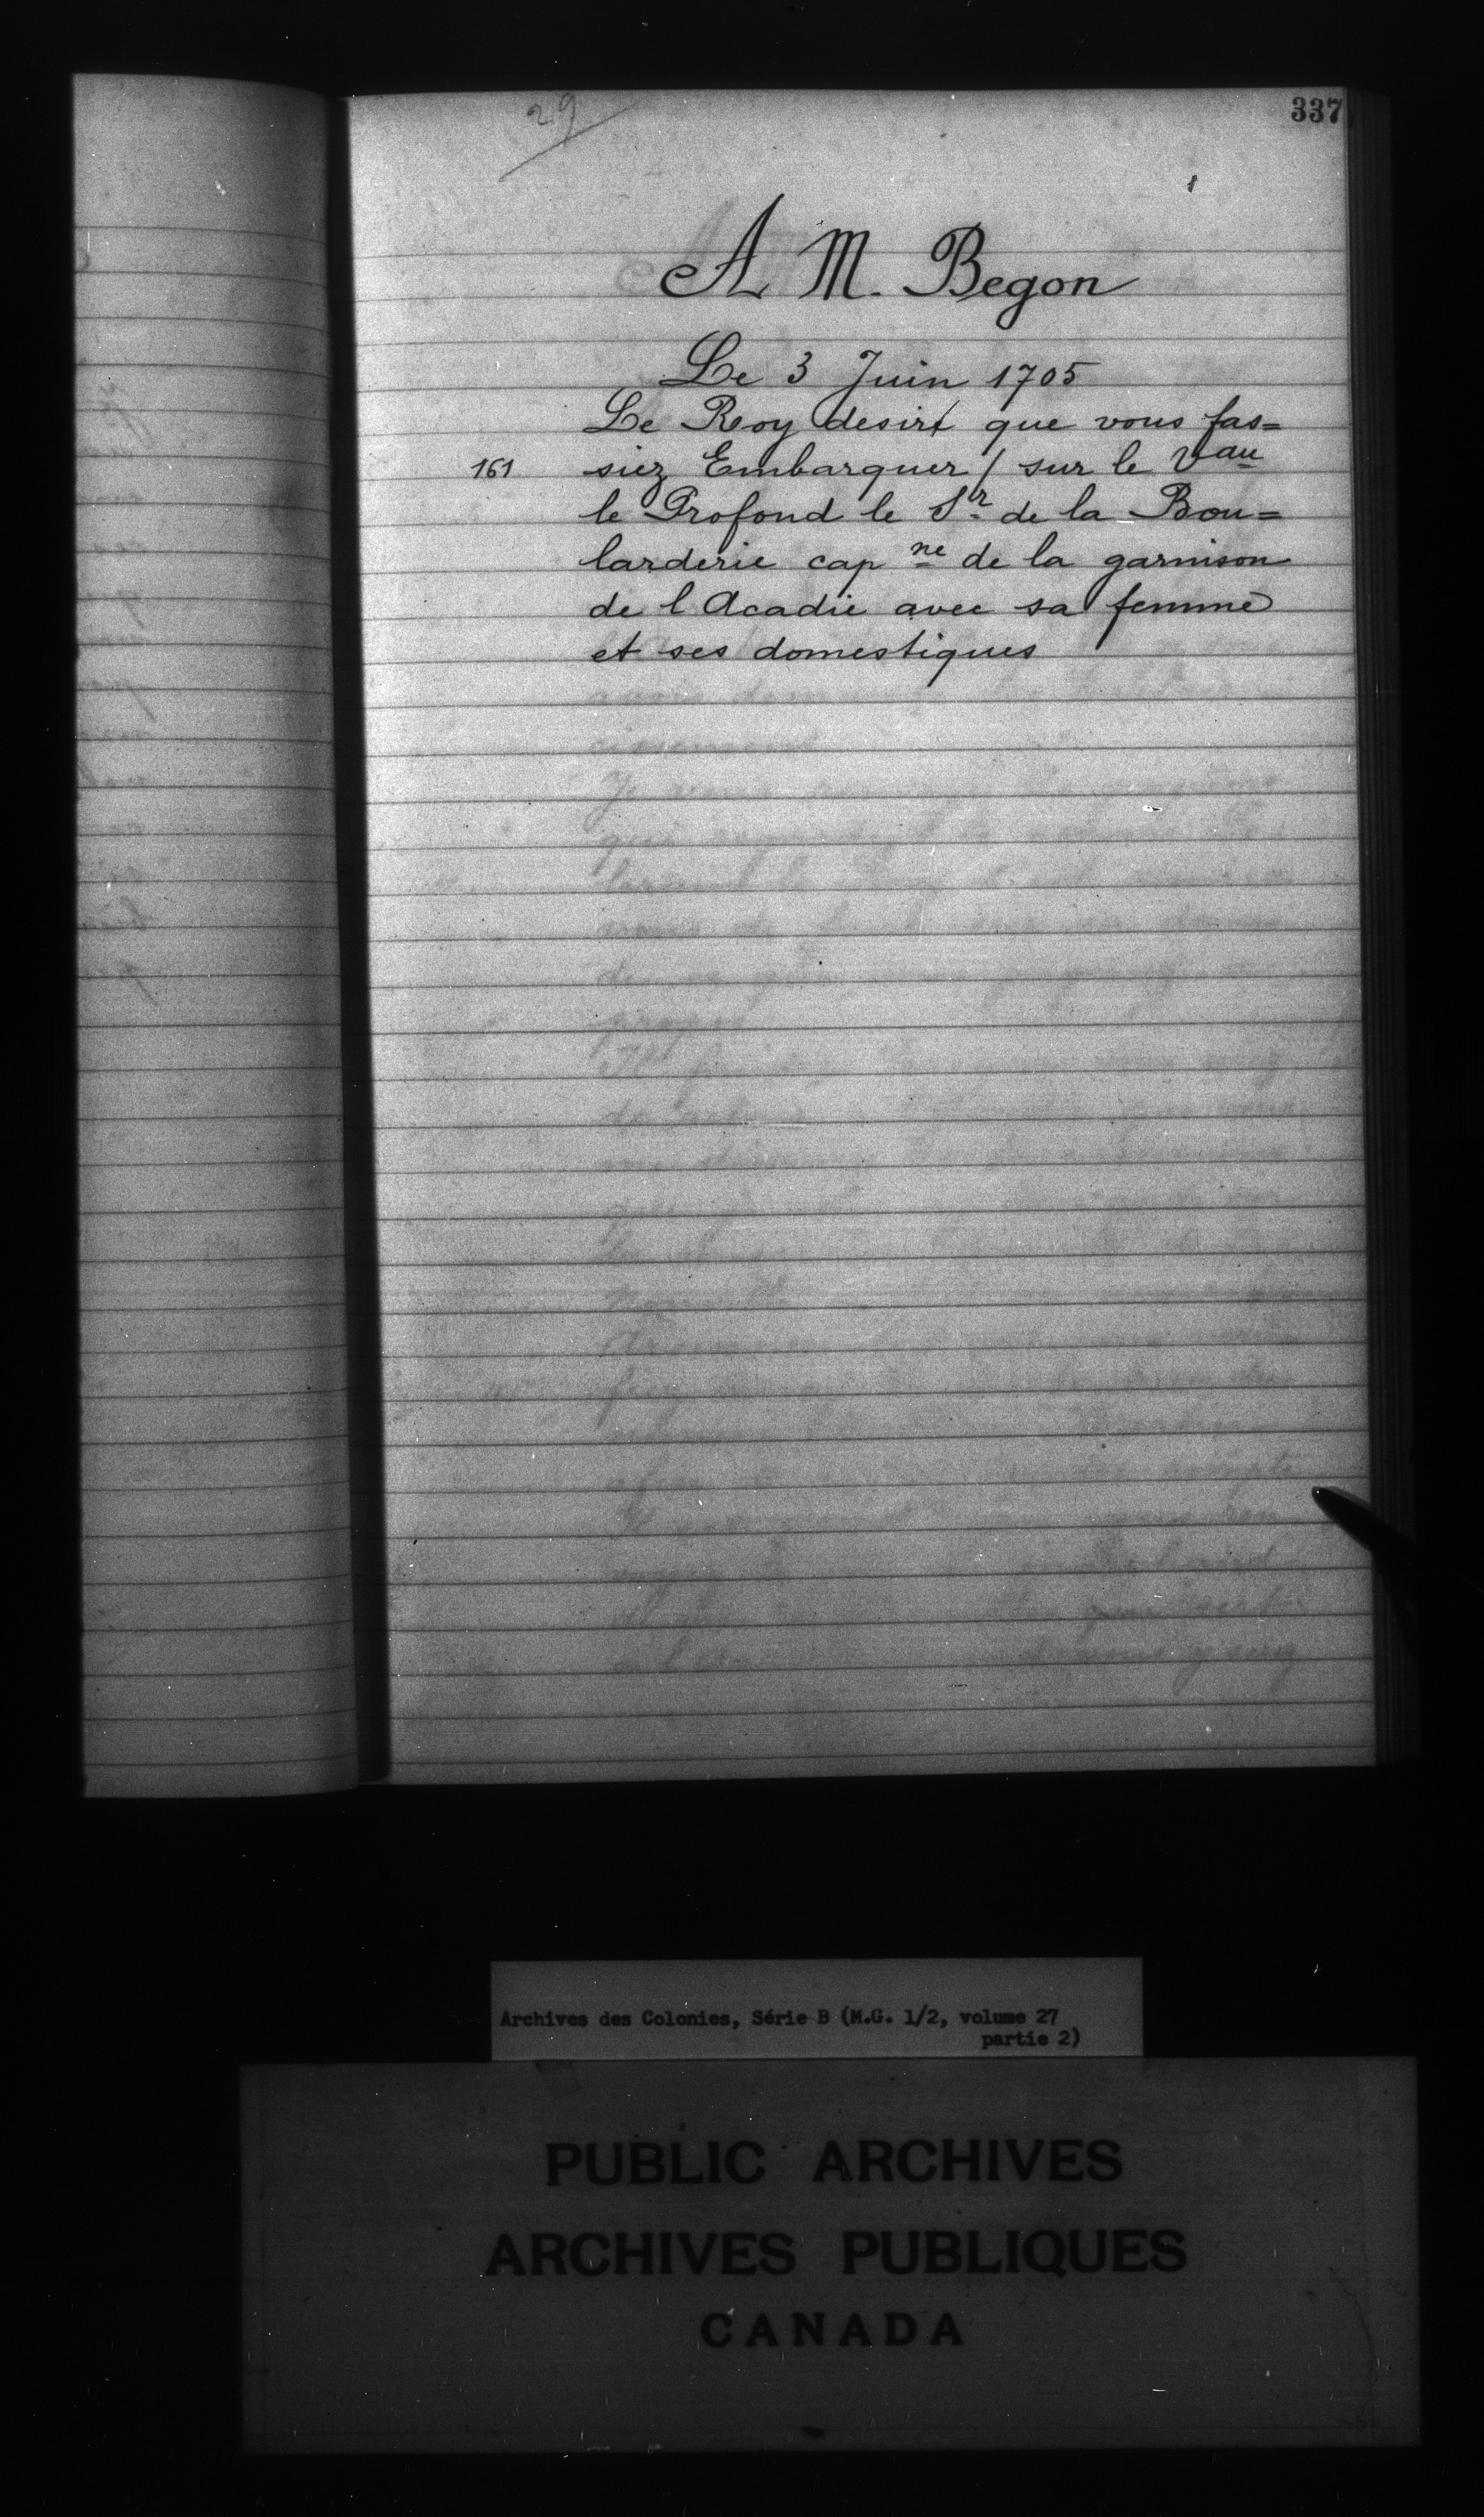 29
337
A M. Begon
Le 3 Juin 1705
Le Roy desire que vous fas=
161 siez Embarquer / sur le Vau
le Profond le Sr. de la Bou=
larderie cap ne de la garnison
de l Acadie avec sa femme
et ses domestiques
Archives des Colonies, Série B (M.G. 1/2, volume 27
partie 2)
PUBLIC ARCHIVES
ARCHIVES PUBLIQUES
CANADA